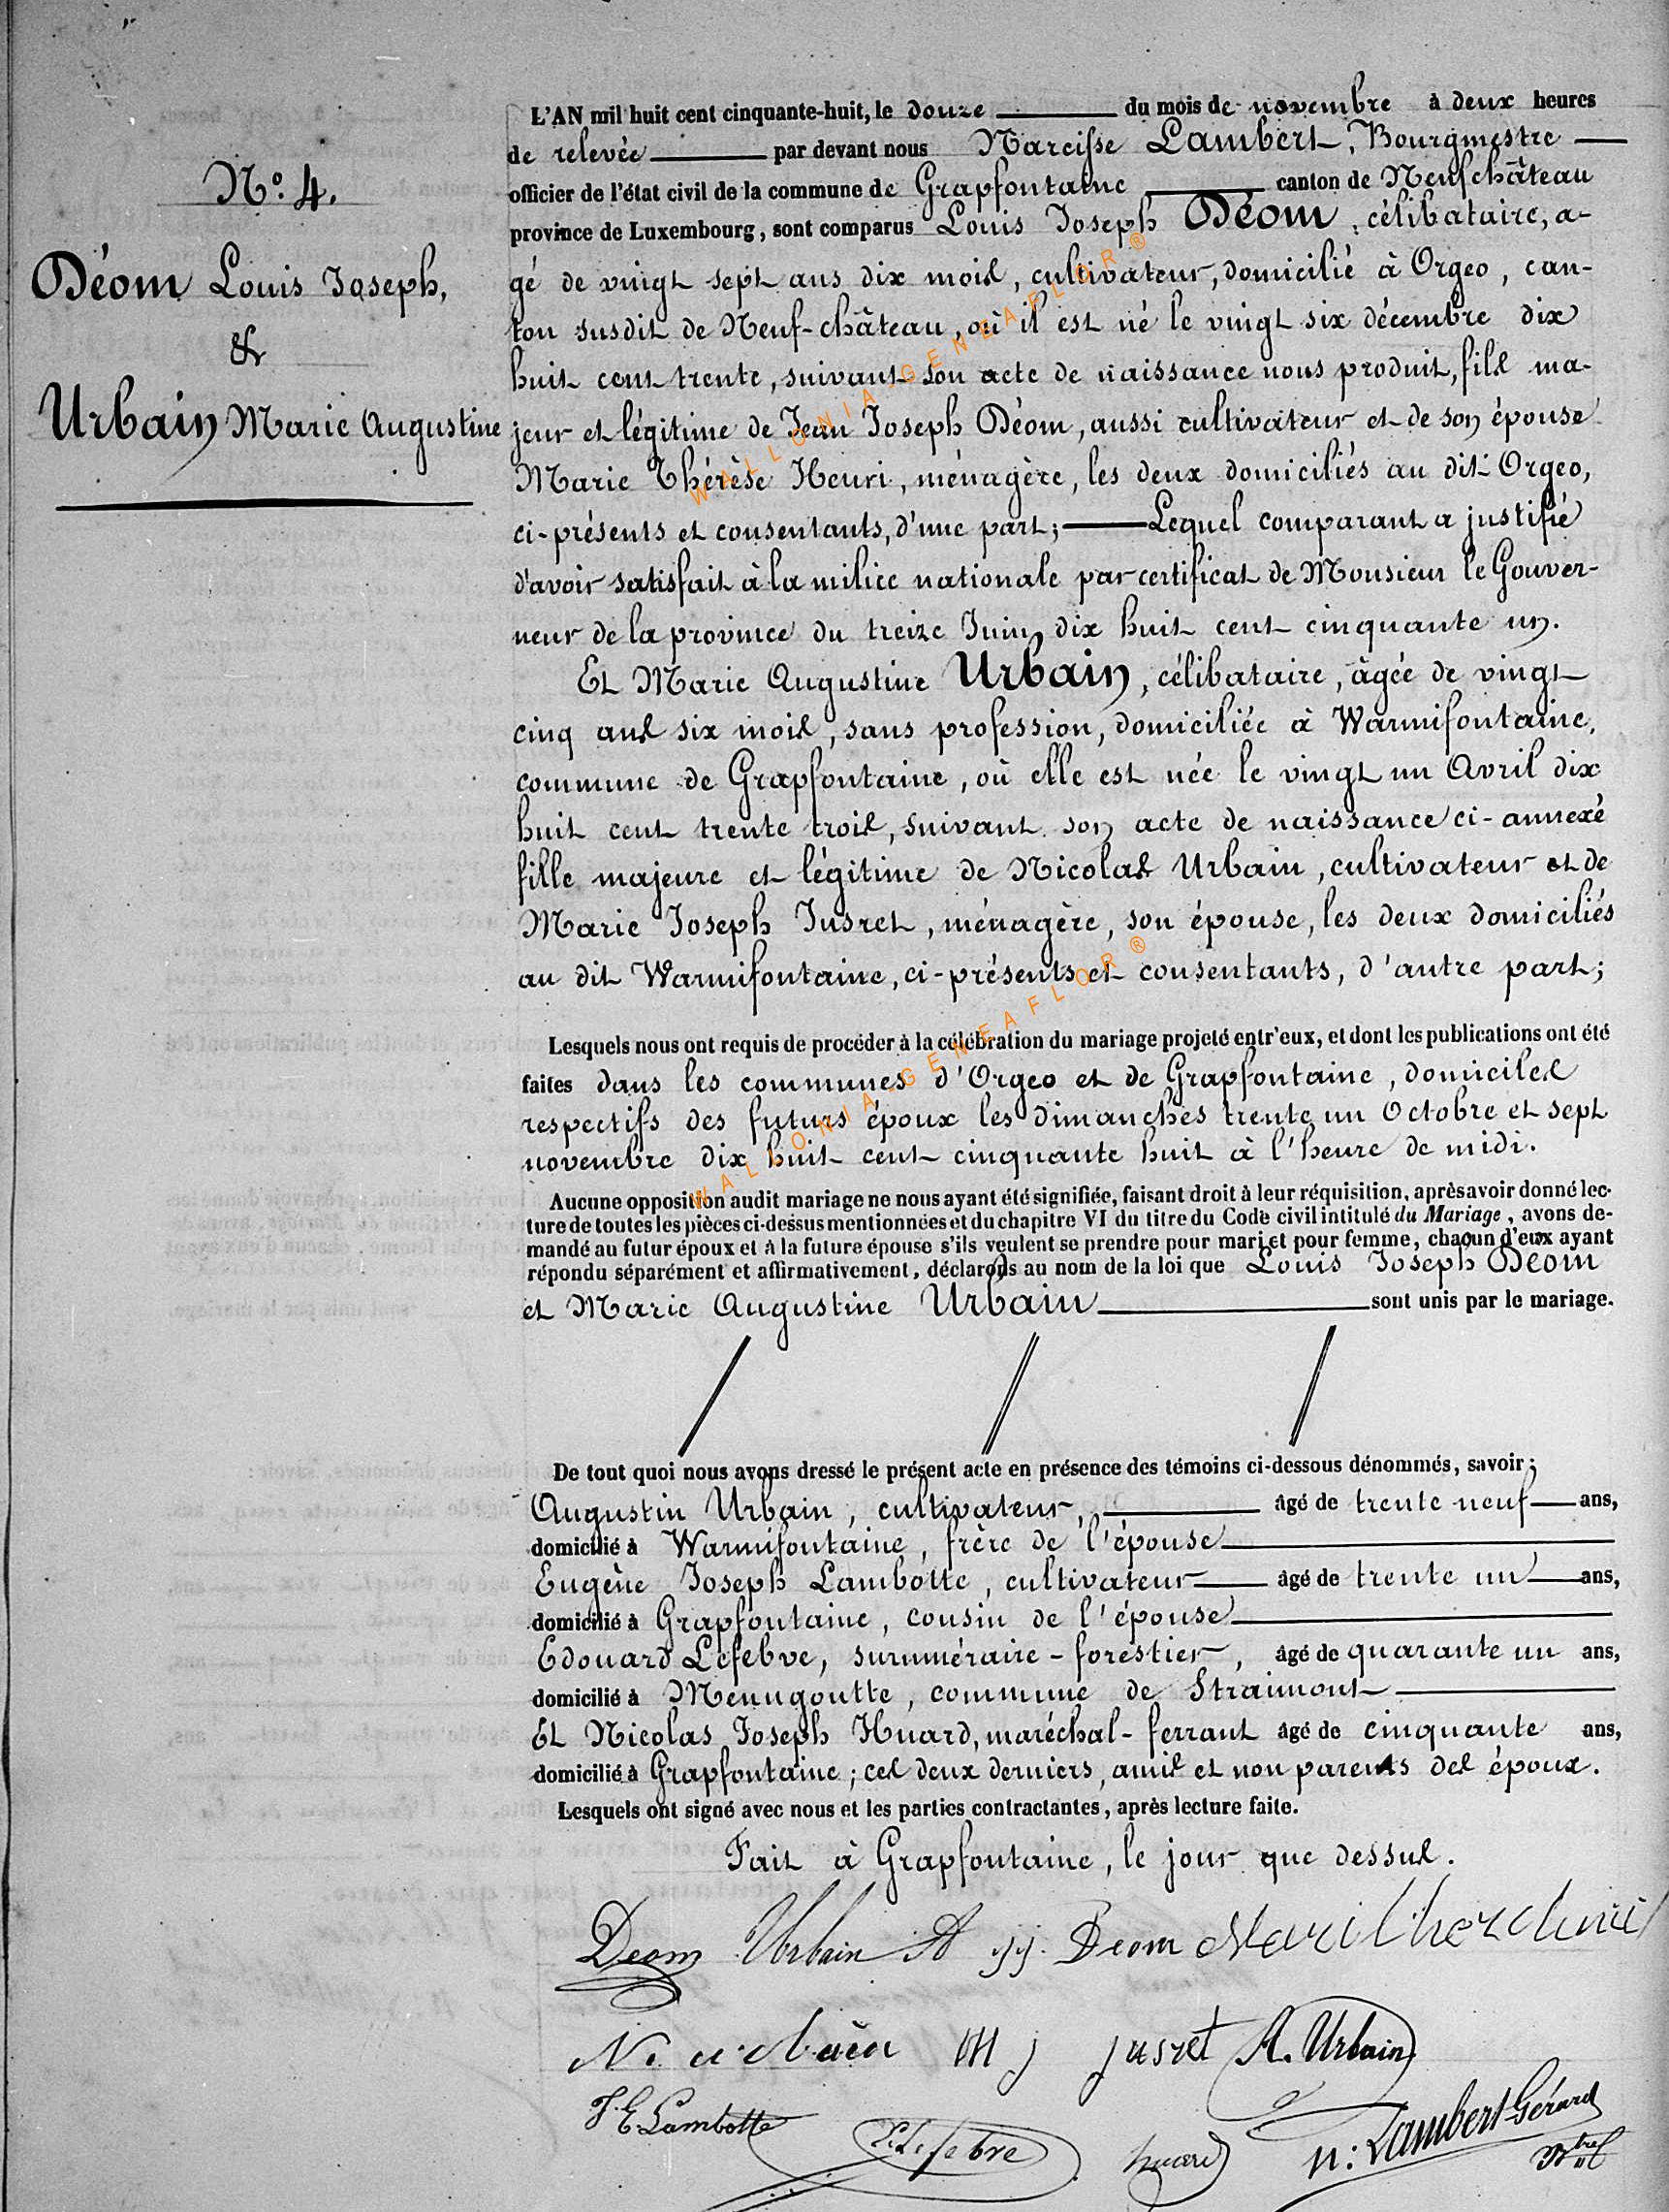 N° 4.
Déom Louis Joseph,
&
Urbain Marie Augustine
L'AN mil huit cent cinquante-huit, le douze du mois de novembre à deux heures
de relevée par devant nous Narcisse Lambert, Bourgmestre
officier de l'état civil de la commune de Grapfontaine canton de Neufchâteau
province de Luxembourg, sont comparus Louis Joseph Déom, célibataire, a-
gé de vingt sept ans dix mois, cultivateur, domicilié à Orgeo, can-
ton susdit de Neuf-château, où il est né le vingt six décembre dix
huit cent trente, suivant son acte de naissance nous produit, fils ma-
jeur et légitime de Jean Joseph Déom, aussi cultivateur et de son épouse
Marie Thérèse Henri, ménagère, les deux domiciliés au dit Orgeo,
ci-présents et consentants, d'une part; Lequel comparant a justifié
d'avoir satisfait à la milice nationale par certificat de Monsieur le Gouver-
neur de la province du treize Juin dix huit cent cinquante un.
Et Marie Augustine Urbain, célibataire, âgée de vingt
cinq ans six mois, sans profession, domiciliée à Warmifontaine,
commune de Grapfontaine, où elle est née le vingt un Avril dix
huit cent trente trois, suivant son acte de naissance ci-annexé
fille majeure et légitime de Nicolas Urbain, cultivateur et de
Marie Joseph Jusret, ménagère, son épouse, les deux domiciliés
au dit Warmifontaine, ci-présents et consentants, d'autre part;
Lesquels nous ont requis de procéder à la célébration du mariage projeté entr'eux, et dont les publications ont été
faites dans les communes d'Orgeo et de Grapfontaine, domiciles
respectifs des futurs époux les dimanches trente un Octobre et sept
novembre dix huit cent cinquante huit à l'heure de midi.
Aucune opposition audit mariage ne nous ayant été signifiée, faisant droit à leur réquisition, après avoir donné lec-
ture de toutes les pièces ci-dessus mentionnées et du chapitre VI du titre du Code civil intitulé du Mariage, avons de-
mandé au futur époux et à la future épouse s'ils veulent se prendre pour mari et pour femme, chacun d'eux ayant
répondu séparément et affirmativement, déclarons au nom de la loi que Louis Joseph Déom
et Marie Augustine Urbain sont unis par le mariage.
De tout quoi nous avons dressé le présent acte en présence des témoins ci-dessous dénommés, savoir:
Augustin Urbain, cultivateur, âgé de trente neuf ans,
domicilié à Warmifontaine, frère de l'épouse
Eugène Joseph Lambotte, cultivateur âgé de trente un ans,
domicilié à Grapfontaine, cousin de l'épouse
Edouard Lefebve, surnuméraire-forestier, âgé de quarante un ans,
domicilié à Menugoutte, commune de Straimont
Et Nicolas Joseph Huard, maréchal-ferrant âgé de cinquante ans,
domicilié à Grapfontaine; ces deux derniers, amis et non parents des époux.
Lesquels ont signé avec nous et les parties contractantes, après lecture faite.
Fait à Grapfontaine, le jour que dessus.
Deom Urbain A jj. Deom
N. urbain M j jusret A. Urbain
J. E. Lambotte E. Lefebve huard N: Lambert-Gérard
Btre
WALLONIA-GENEAFLOR®
WALLONIA-GENEAFLOR®